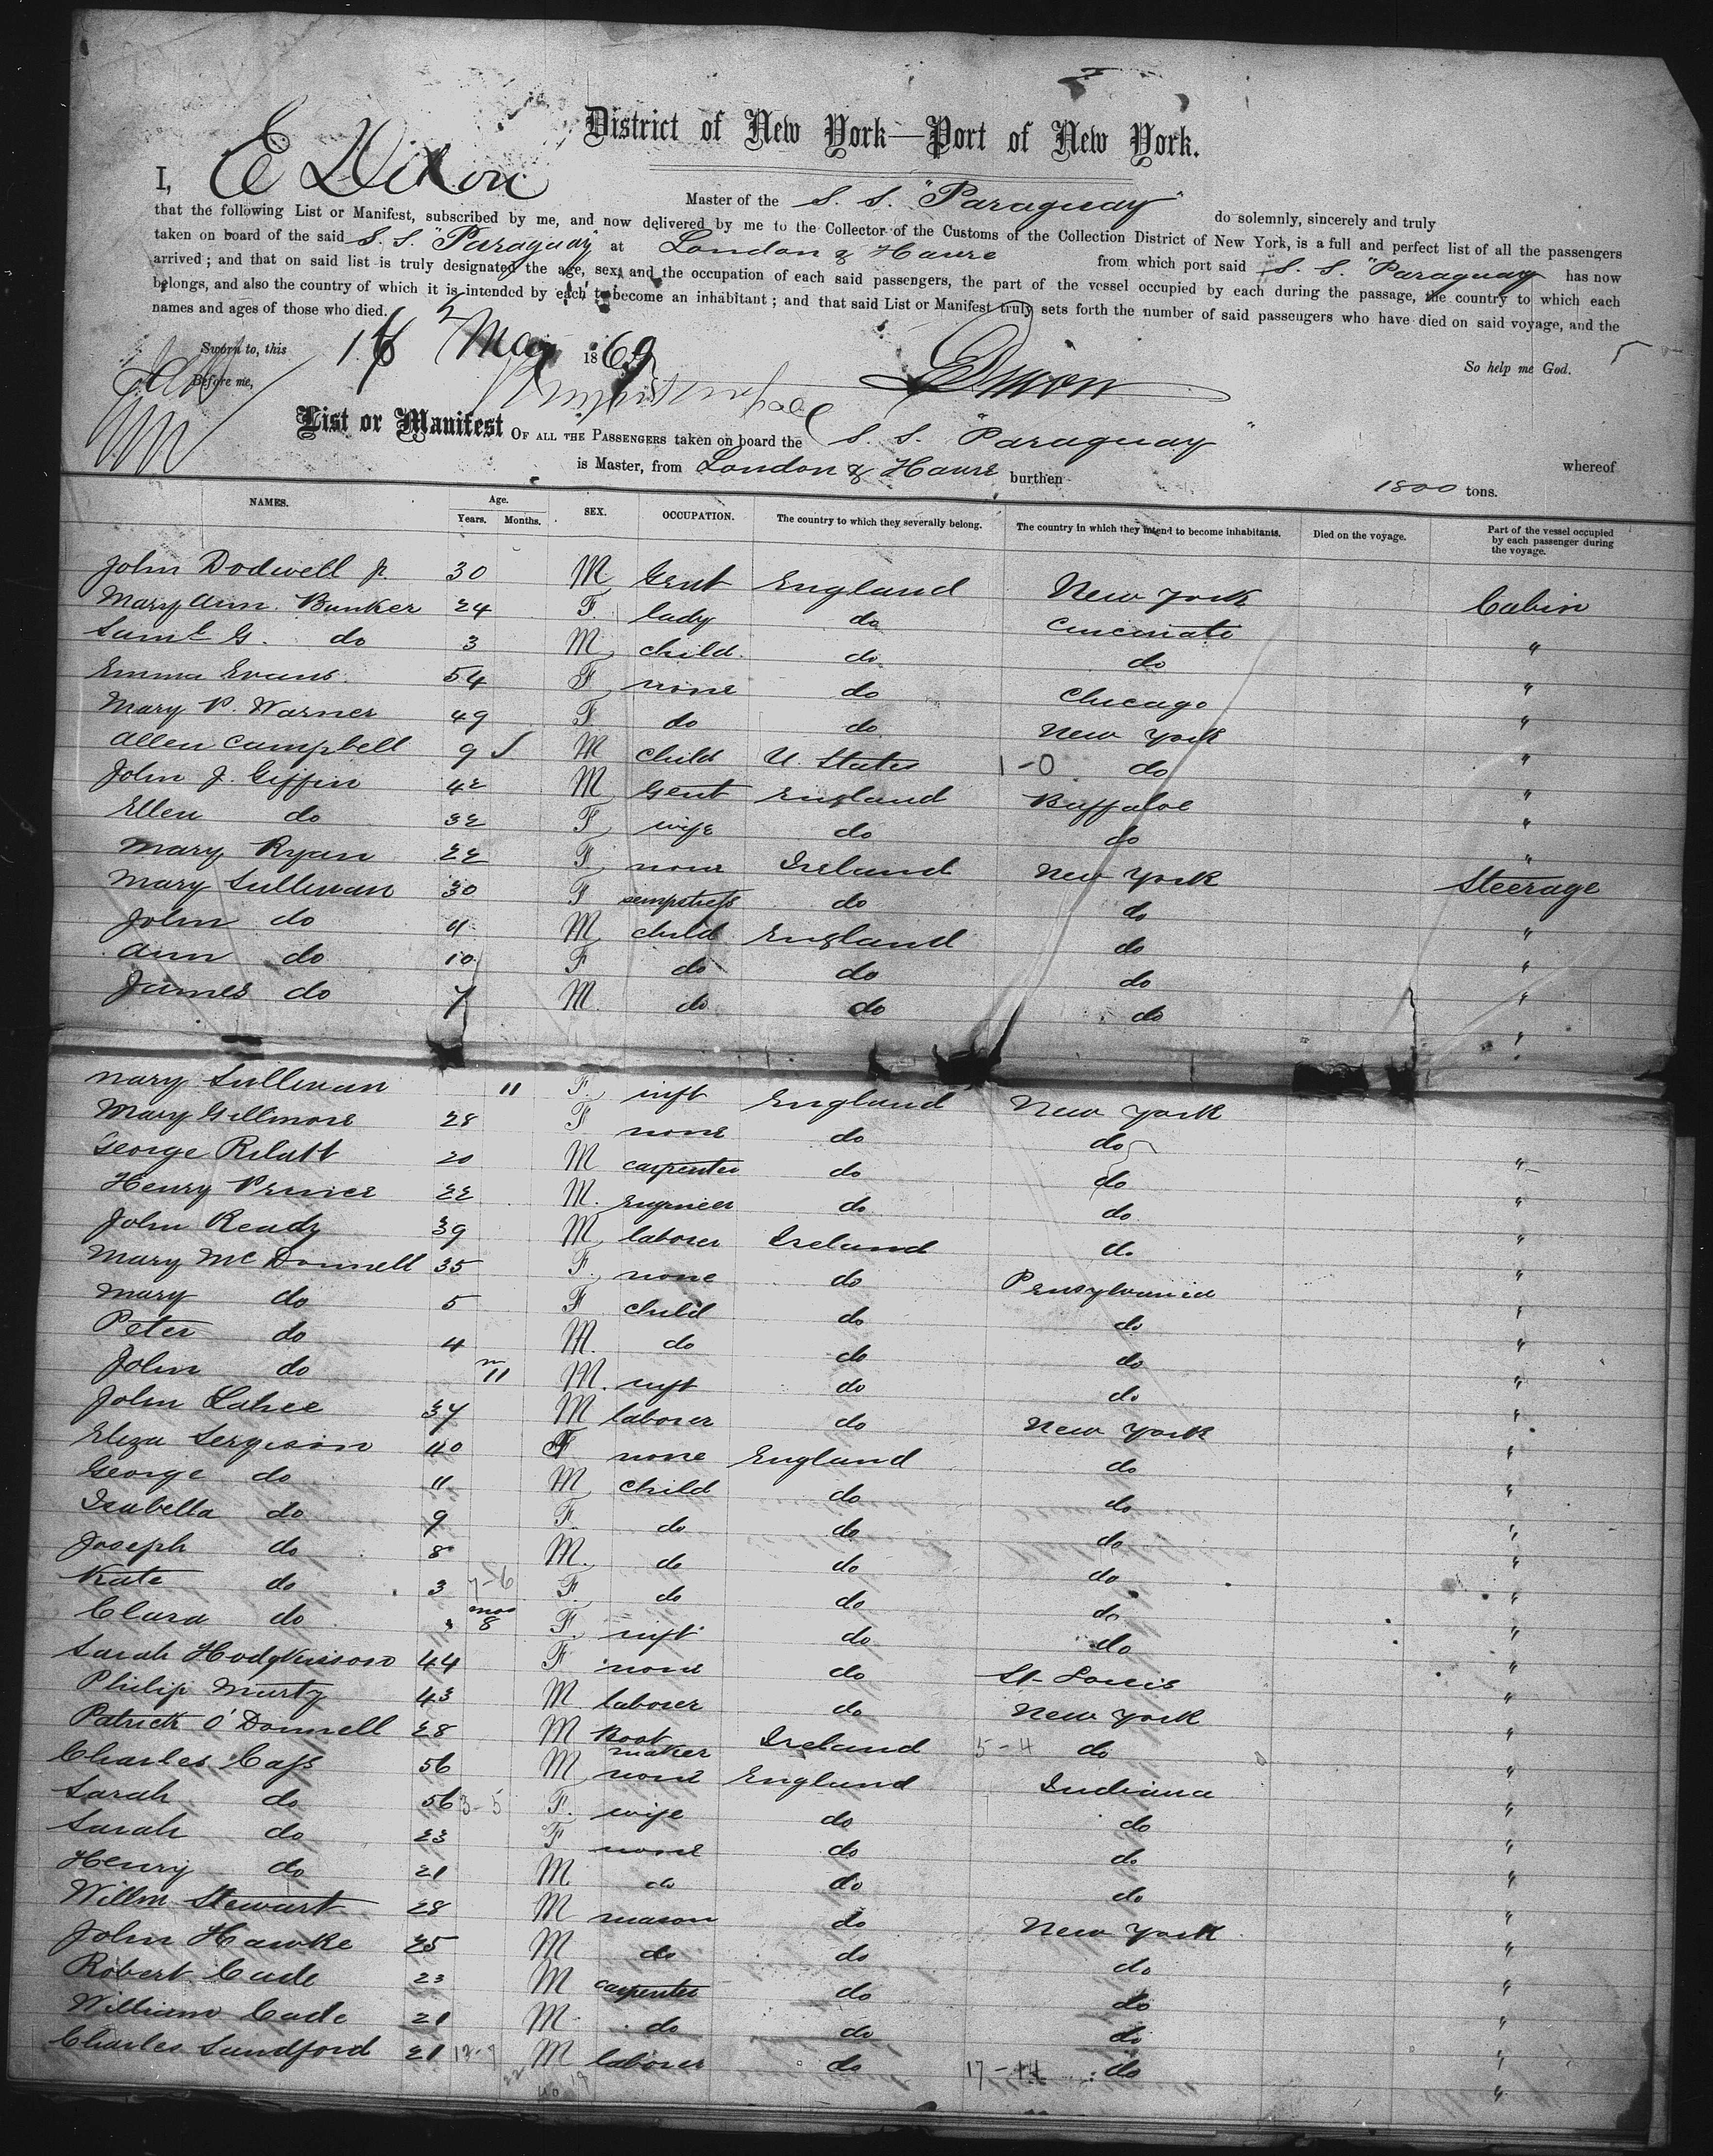 District of New York—Port of New York.
I, E Dixon Master of the S. S. "Paraguay" do solemnly, sincerely and truly
that the following List or Manifest, subscribed by me, and now delivered by me to the Collector of the Customs of the Collection District of New York, is a full and perfect list of all the passengers
taken on board of the said S. S. "Paraguay" at London & Havre from which port said S. S. "Paraguay" has now
arrived; and that on said list is truly designated the age, sex, and the occupation of each said passengers, the part of the vessel occupied by each during the passage, the country to which each
belongs, and also the country of which it is intended by each to become an inhabitant; and that said List or Manifest truly sets forth the number of said passengers who have died on said voyage, and the
names and ages of those who died.
Sworn to, this May 1869 So help me God.
Before me, EDixon
List or Manifest OF ALL THE PASSENGERS taken on board the S. S. "Paraguay" whereof
is Master, from London & Havre burthen 1800 tons.
NAMES. Age. Years. Months. SEX. OCCUPATION. The country to which they severally belong. The country in which they intend to become inhabitants. Died on the voyage. Part of the vessel occupied by each passenger during the voyage.
John Dodwell Jr. 30 M Gent England New York Cabin
Mary Ann Bunker 24 F. lady do Cincinati "
Saml G. do 3 M child. do do "
Emma Evans. 54 F none do Chicago "
Mary P. Warner 49 F. do do New York "
Allen Campbell 9 M child U. States 1-0 do "
John J. Giffin 42 M Gent England Buffaloe "
Ellen do 32 F wife do do "
Mary Ryan 22 F none Ireland New York Steerage
Mary Sullivan 30 F sempstress do do "
John do 11 M child England do "
Ann do 10 F do do do "
James do 7 M. do do do "
Mary Sullivan 11 F. inft England New York
Mary Gillmore 28 F none do do "
George 20 M carpenter do do "
Henry 22 M. Engineer do do
John Ready 39 M laborer Ireland do "
Mary McDonnell 35 F. none do Pensylvania "
Mary do 5 F child do do "
Peter do 4 M. do do do "
John do m 11 M. inft do do "
John Lahee 37 M laborer do New York "
Eliza Sergison 40 F none England do "
George do 11 M child do do "
Isabella do 9 F. do do do "
Joseph do 8 M. do do do "
Kate do 3 7-6 F. do do do "
Clara do " mos 8 F. inft do do "
Sarah Hodgkinson 44 F none do St. Louis "
Philip Murty 43 M laborer do New York "
Patrick O'Donnell 28 M Boot maker Ireland 5-4 do "
Charles Cass 56 M none England Indiana "
Sarah do 56 3-5 F. wife do do "
Sarah do 23 F none do do "
Henry do 21 M do do do "
Willm Stewart 28 M mason do New York "
John Hawke 25 M do do do "
Robert Cade 23 M carpenter do do "
William Cade 21 M do do do "
Charles Sandford 21 M laborer do 17-14 do "